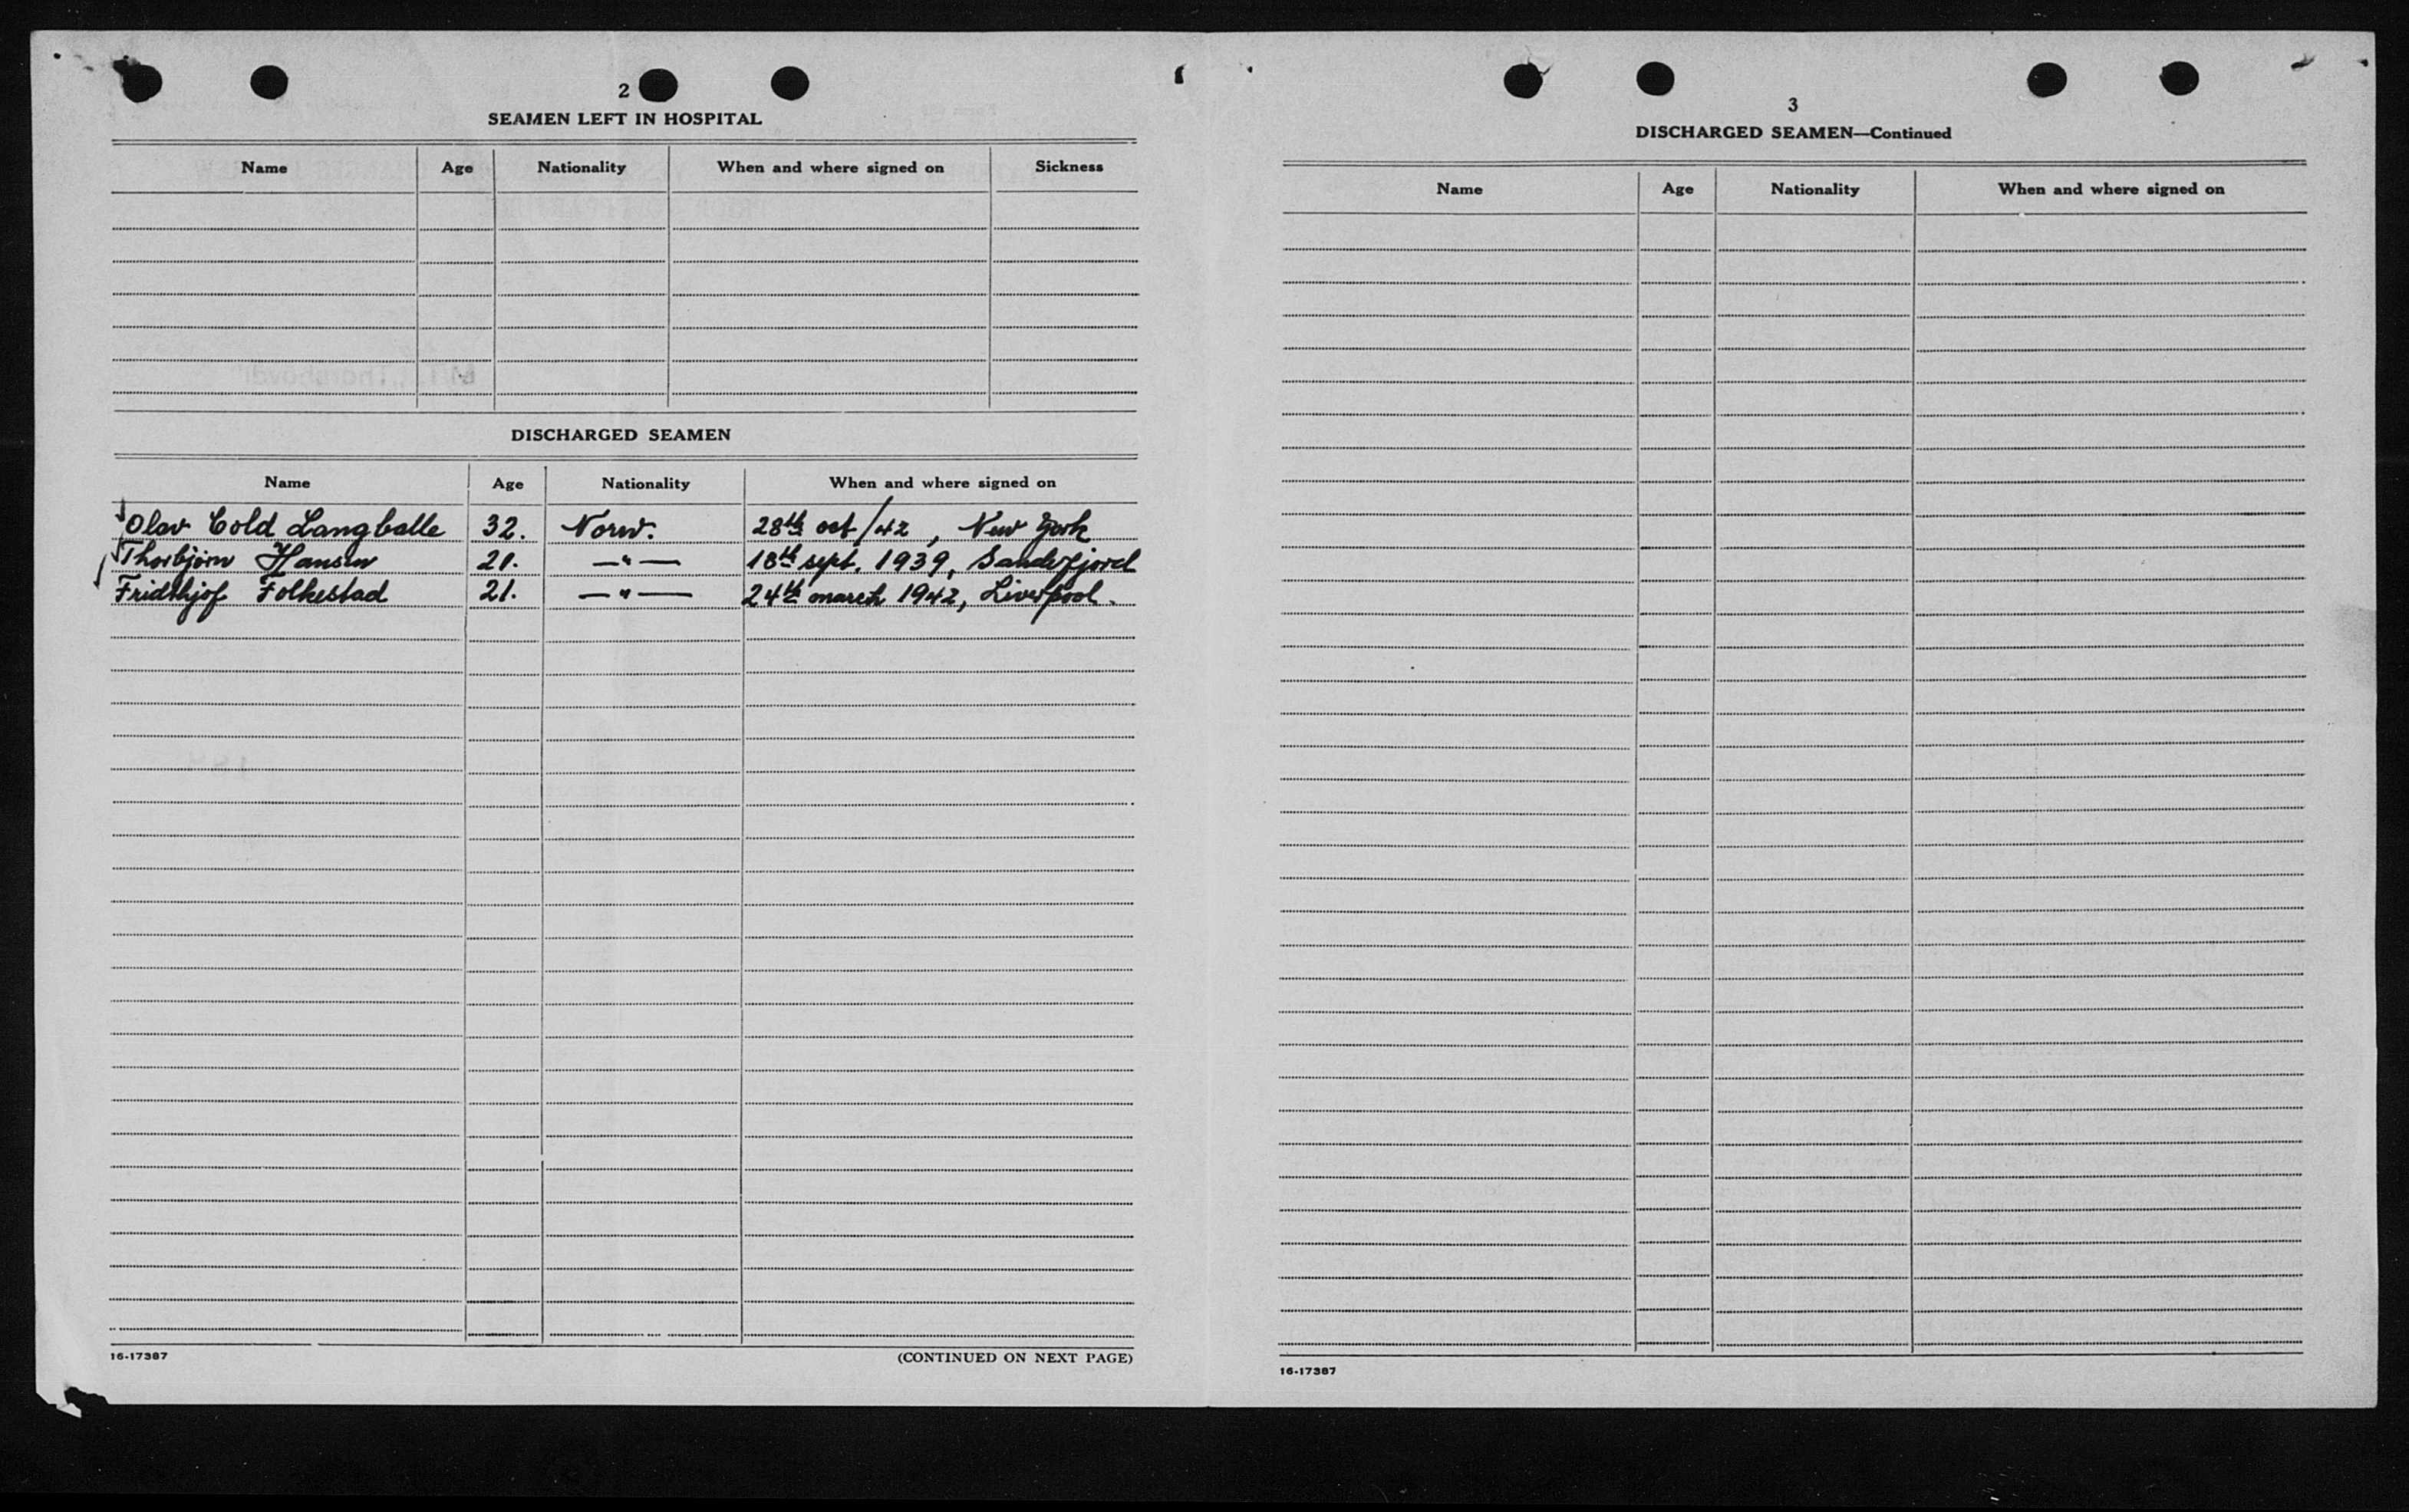 2
SEAMEN LEFT IN HOSPITAL
Name Age Nationality When and where signed on Sickness
DISCHARGED SEAMEN
Name Age Nationality When and where signed on
Olav Cold Langballe 32. Norw. 28th oct/42, New York
Thorbjørn Hansen 21. —"— 18th sept. 1939, Sandefjord
Fridthjof Folkestad 21. —"— 24th march 1942, Liverpool.
16-17387
(CONTINUED ON NEXT PAGE)
3
DISCHARGED SEAMEN—Continued
Name Age Nationality When and where signed on
16-17387